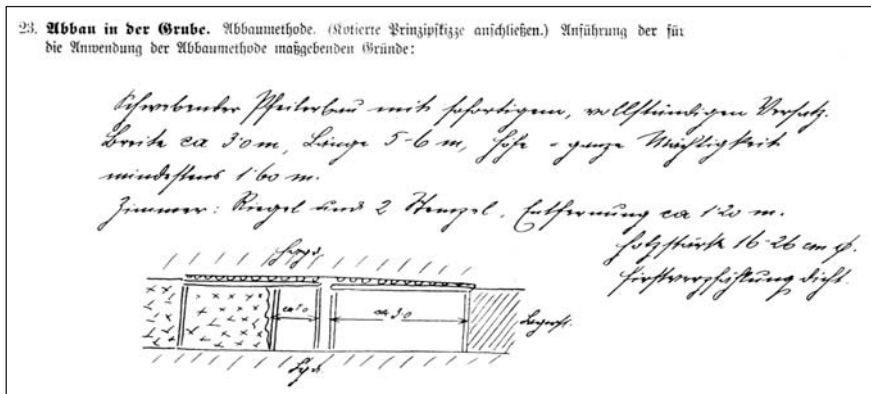 23. Abbau in der Grube. Abbaumethode. (Kotierte Prinzipskizze anschließen.) Anführung der für
die Anwendung der Abbaumethode maßgebenden Gründe:
Schwebender Pfeilerbau mit sofortigem, vollständigen Versatz.
Breite ca 3·0 m, Länge 5-6 m, Höhe = ganze Mächtigkeit
mindestens 1·60 m.
Zimmer: Riegel und 2 Stempel, Entfernung ca 1·20 m.
Holzstärke 16-26 cm ø.
Firstverpfählung dicht.
ca 1·0
ca 3·0
Lagerst.